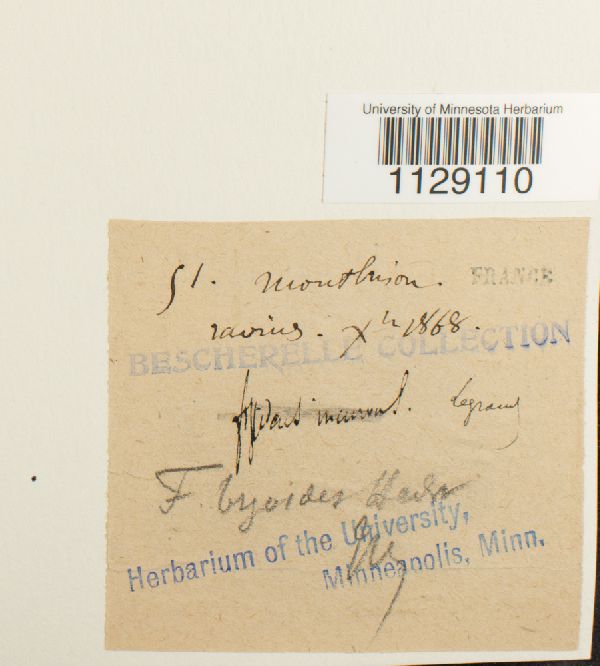 University of Minnesota Herbarium
1129110
51. Montbrison. FRANCE
ravins. Xbr 1868.
BESCHERELLE COLLECTION
Legrand
F. bryoides Hedw
Herbarium of the University,
Minneapolis, Minn.